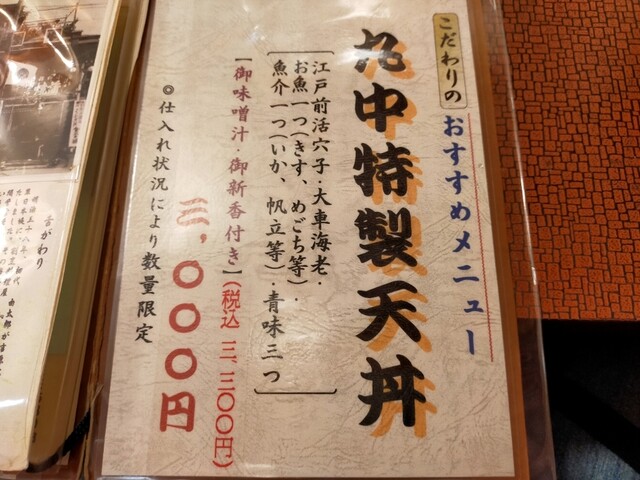 こだわりの
おすすめメニュー
丸中特製天丼
江戸前活穴子・大車海老・
お魚一つ(きす、めごち等)・
魚介一つ(いか、帆立等)・青味三つ
【御味噌汁・御新香付き】(税込 三、三〇〇円)
三、〇〇〇円
◎仕入れ状況により数量限定
舌がわり